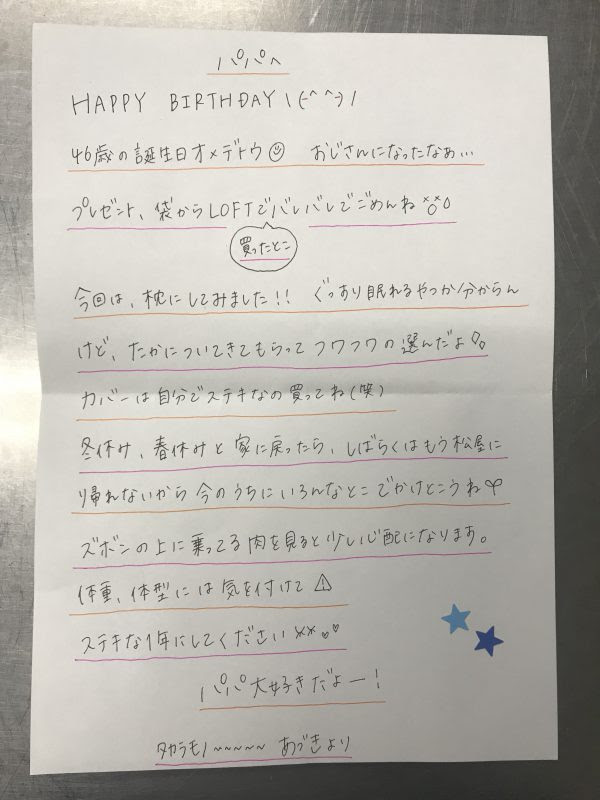 パパへ
HAPPY BIRTHDAY \(-^^-)/
46歳の誕生日オメデトウ☺ おじさんになったなぁ…
プレゼント、袋からLOFTでバレバレでごめんね
買ったとこ
今回は、枕にしてみました!! ぐっすり眠れるやつか分からん
けど、たかについてきてもらってフワフワの選んだよ
カバーは自分でステキなの買ってね(笑)
冬休み、春休みと家に戻ったら、しばらくはもう松屋に
帰れないから今のうちにいろんなとこでかけとこうね
ズボンの上に乗ってる肉を見ると少し心配になります。
体重、体型には気を付けて⚠
ステキな1年にしてください
パパ大好きだよー!
タカラモノ~~~~~ あづきより